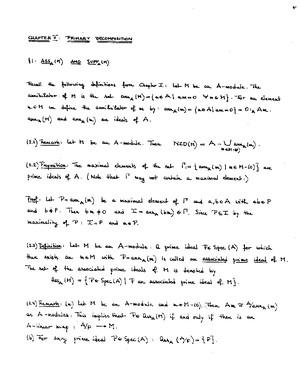 CHAPTER V: PRIMARY DECOMPOSITION
§1: ASS_A(M) AND SUPP_A(M)
Recall the following definitions from Chapter I: Let M be an A-module. The
annihilator of M is the set ann_A(M) = {a∈A | am=0 ∀m∈M}. For an element
m∈M we define the annihilator of m by: ann_A(m) = {a∈A | am=0} = 0:_A Am.
ann_A(M) and ann_A(m) are ideals of A.
(1.1) Remark: Let M be an A-module. Then NZD(M) = A - ⋃_{m∈M-{0}} ann_A(m).
(1.2) Proposition: The maximal elements of the set Γ = {ann_A(m) | m∈M-{0}} are
prime ideals of A. (Note that Γ may not contain a maximal element.)
Proof: Let P=ann_A(m) be a maximal element of Γ and a,b∈A with ab∈P
and b∉P. Then bm≠0 and I=ann_A(bm)∈Γ. Since P⊆I by the
maximality of P: I=P and a∈P.
(1.3) Definition: Let M be an A-module. A prime ideal P∈Spec(A) for which
there exists an m∈M with P=ann_A(m) is called an associated prime ideal of M.
The set of the associated prime ideals of M is denoted by
Ass_A(M) = {P∈Spec(A) | P an associated prime ideal of M}.
(1.4) Remark: (a) Let M be an A-module and m∈M-{0}. Then Am ≅ A/ann_A(m)
as A-modules. This implies that P∈Ass_A(M) if and only if there is an
A-linear map: A/P → M.
(b) For any prime ideal P∈Spec(A): Ass_A(A/P) = {P}.